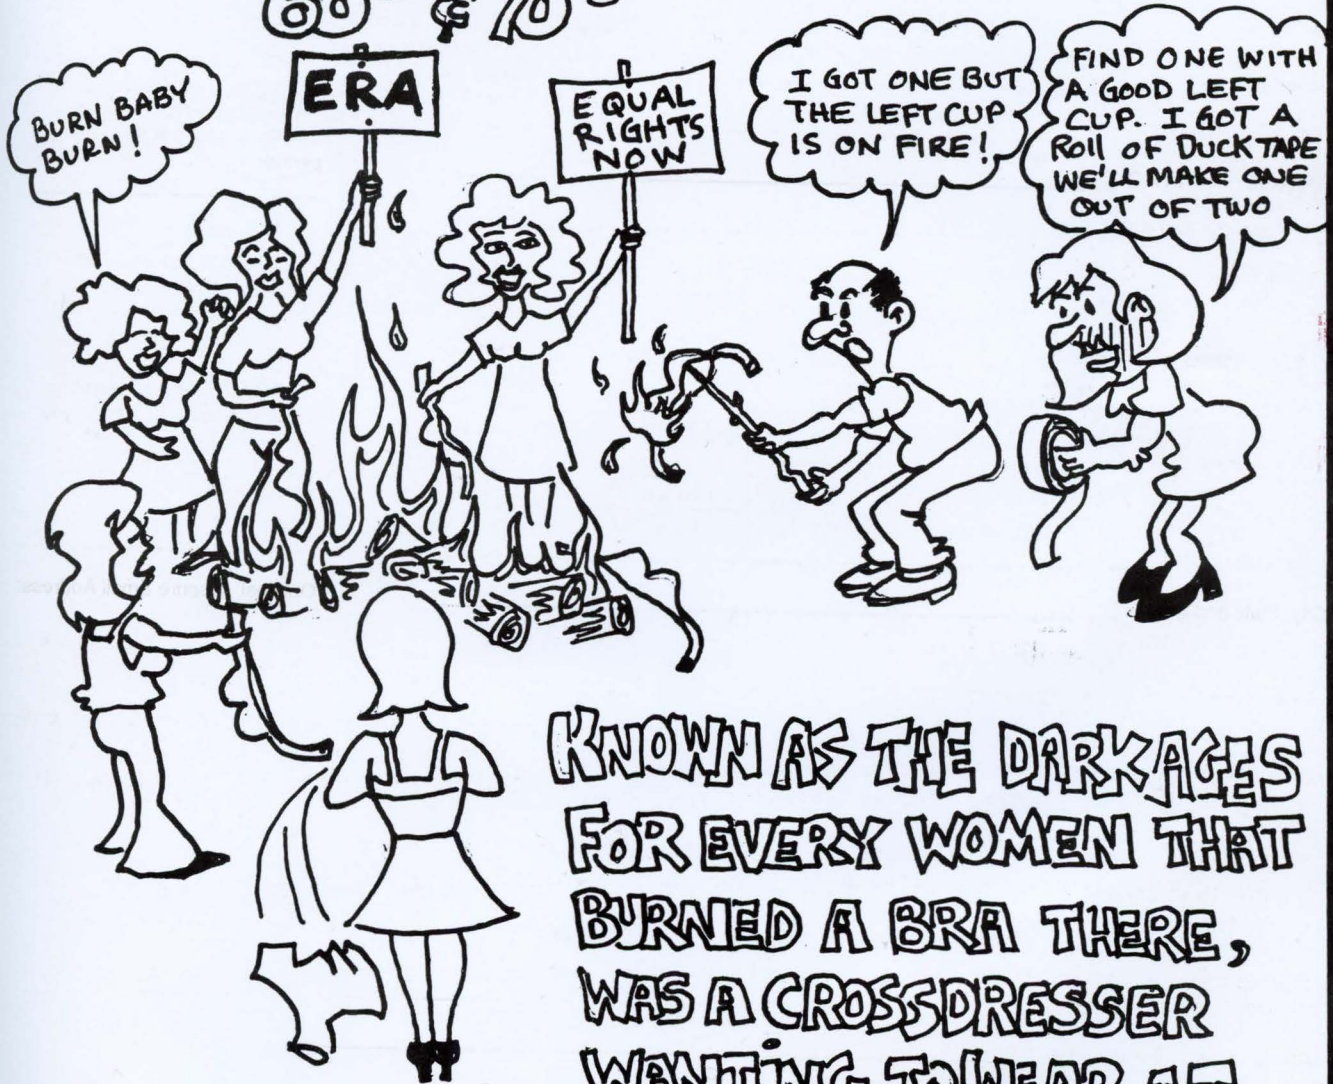 60'S & 70'S
BURN BABY
BURN!
ERA
EQUAL
RIGHTS
NOW
I GOT ONE BUT
THE LEFT CUP
IS ON FIRE!
FIND ONE WITH
A GOOD LEFT
CUP. I GOT A
Roll OF DUCK TAPE
WE'LL MAKE ONE
OUT OF TWO
KNOWN AS THE DARK AGES
FOR EVERY WOMEN THAT
BURNED A BRA THERE,
WAS A CROSSDRESSER
WANTING TO WEAR IT